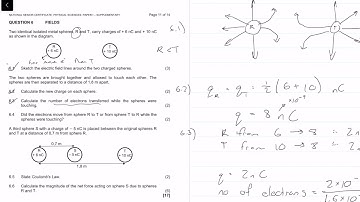 Page 11 of 14
QUESTION 6 FIELDS
Two identical isolated metal spheres, R and T, carry charges of + 6 nC and + 10 nC
as shown in the diagram.
R
+ 6 nC
T
+ 10 nC
6.1 Sketch the electric field lines around the two charged spheres. (3)
The two spheres are brought together and allowed to touch each other. The
spheres are then separated to a distance of 1.8 m apart.
6.2 Calculate the new charge on each sphere. (2)
6.3 Calculate the number of electrons transferred while the spheres were
touching. (2)
6.4 Did the electrons move from sphere R to T or from sphere T to R while the
spheres were touching? (2)
A third sphere S with a charge of − 5 nC is placed between the original spheres R
and T at a distance of 0.7 m from sphere R.
0.7 m
R
+ 6 nC
S
- 5 nC
T
+ 10 nC
1.8 m
6.5 State Coulomb's Law. (2)
6.6 Calculate the magnitude of the net force acting on sphere S due to spheres
R and T. (6)
[17]
6.1)
R
T
R < T
6.2) qR = qT = ½(6 + 10) nC
q = 8 nC
×10⁻⁹
6.3) R from 6 → 8 = 2n
T from 10 → 8 = 2n
q = 2nC
no of electrons = 2×10⁻
1.6×10⁻